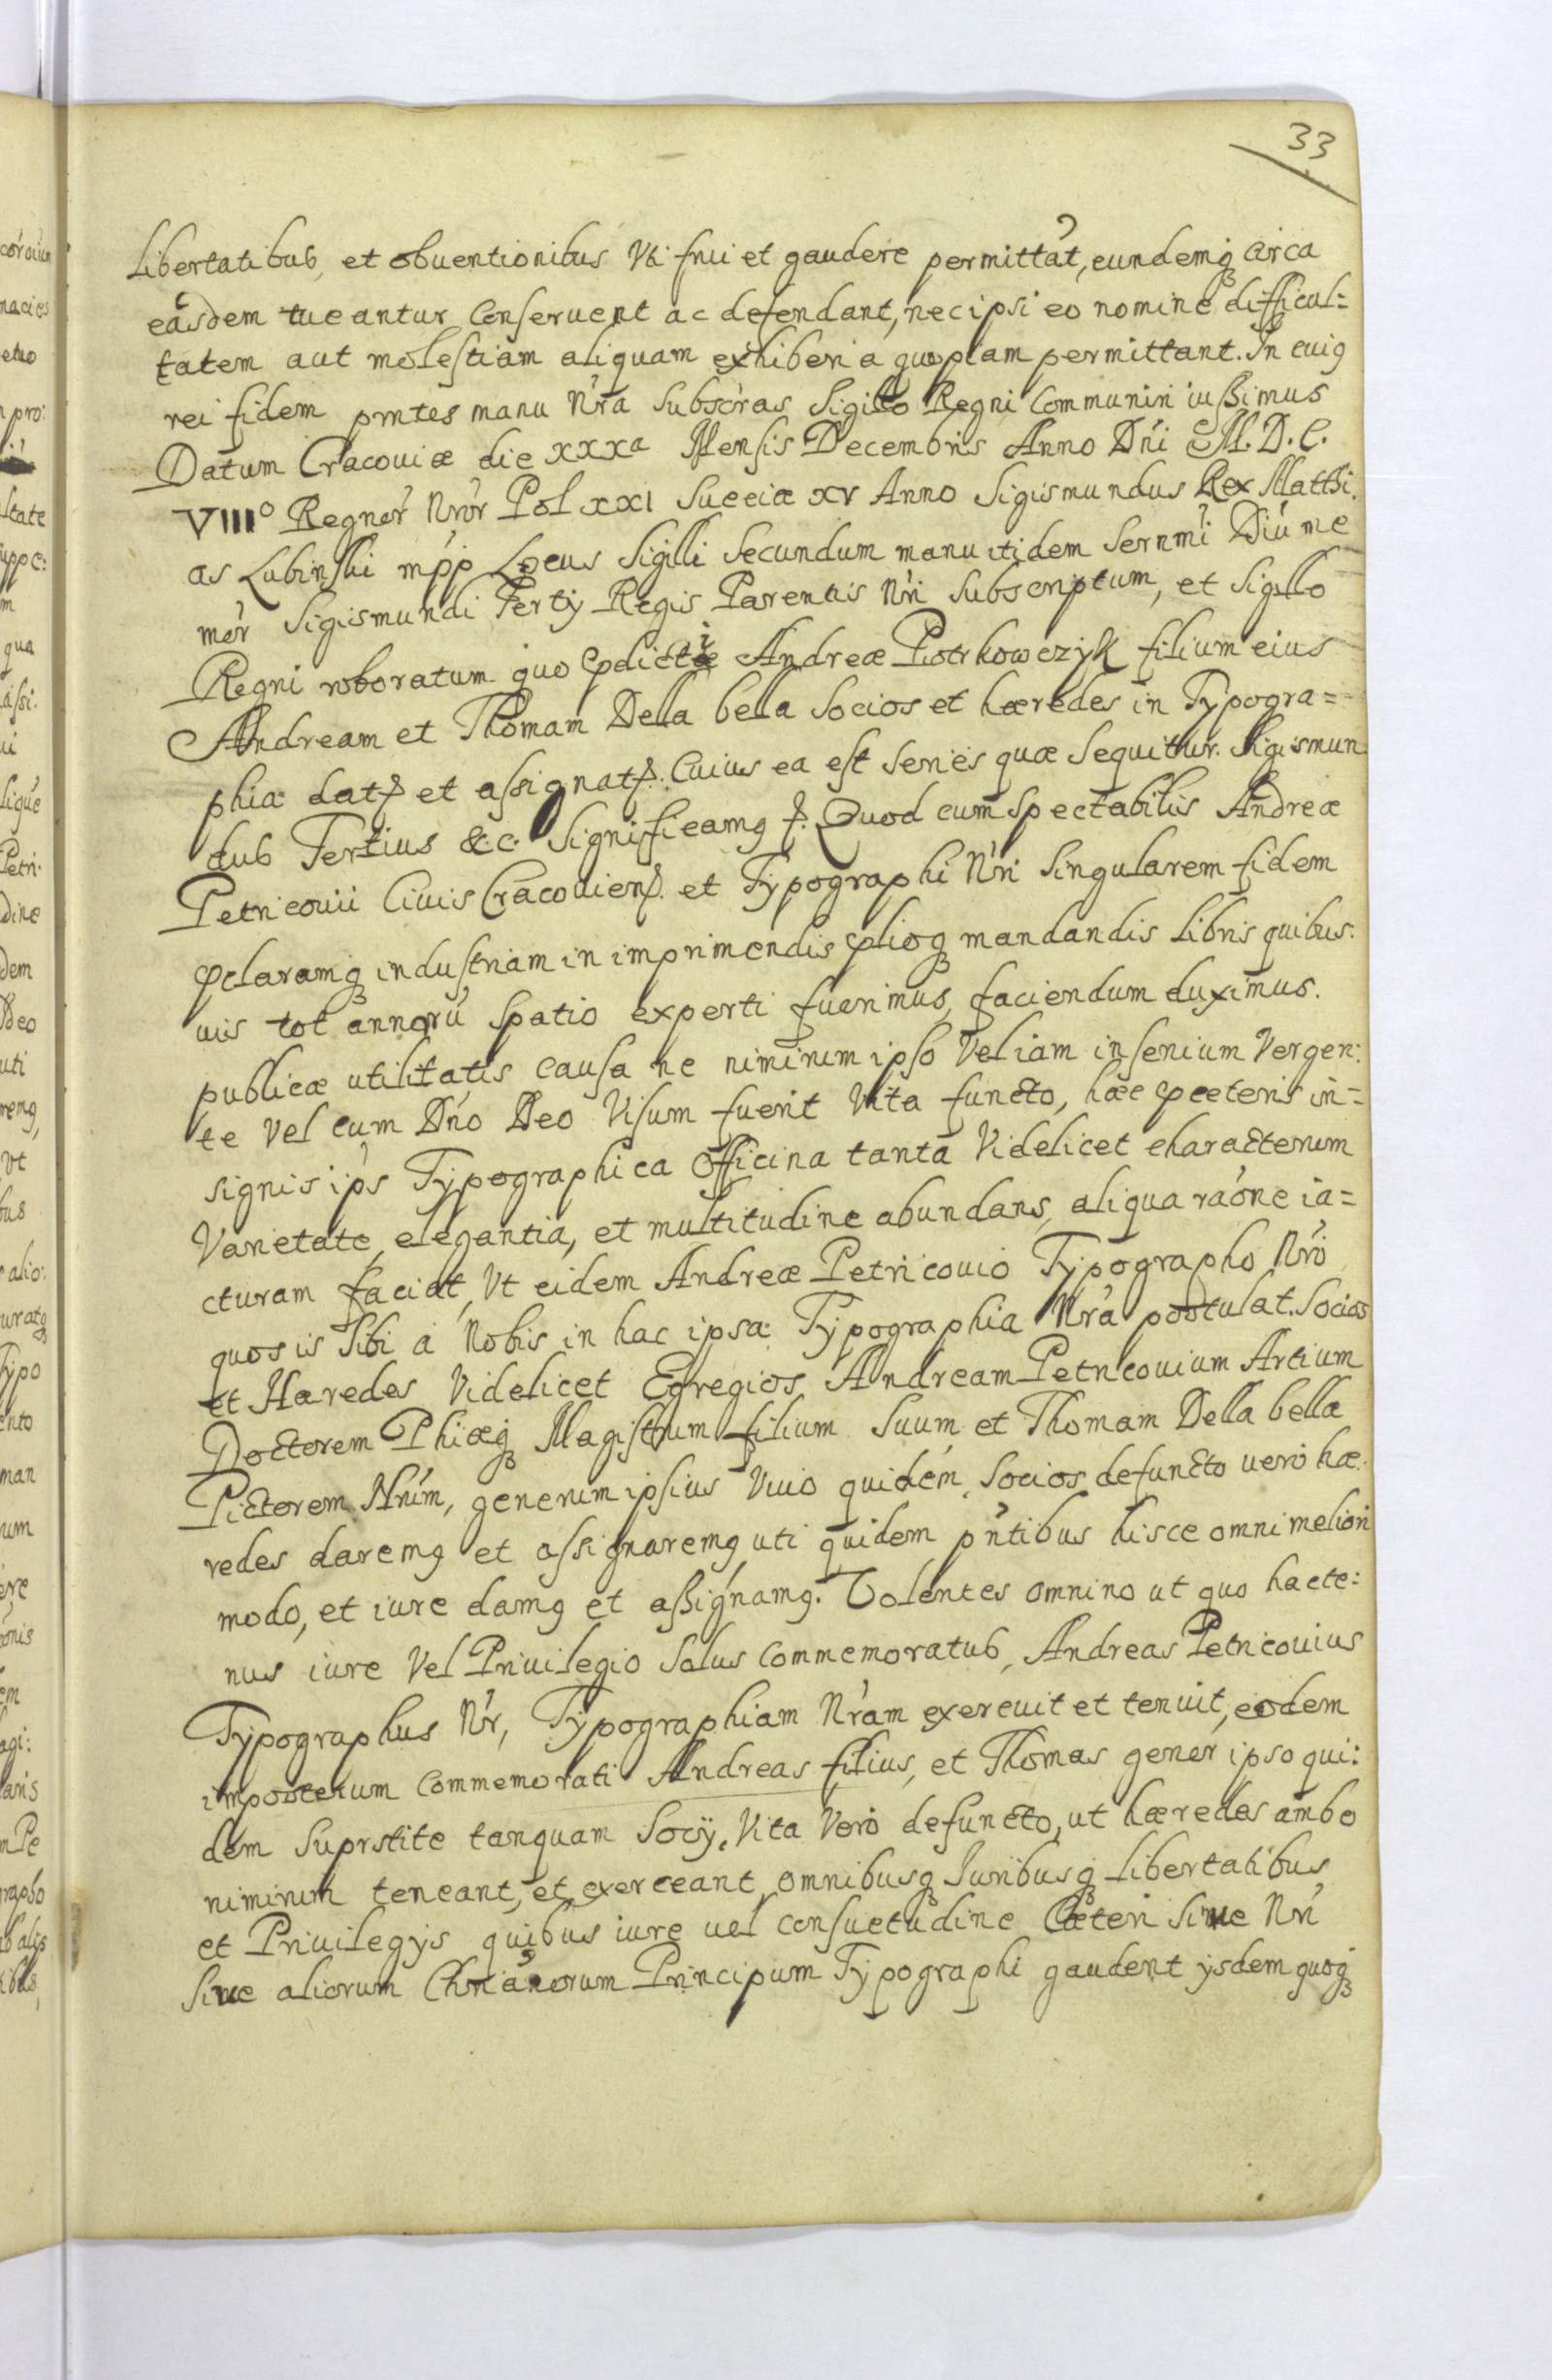 33
Libertatibus, et obuentionibus Vti frui et gaudere permittāt, eundemq circa
eāsdem tueantur Conseruent ac defendant, nec ipsi eo nomine difficul=
tatem aut molestiam aliquam exhiberi a quopiam permittant. In cuig
rei fidem pnntes manu Nra Subscras Sigillo Regni Communiri iussimus
Datum Cracouiæ die xxxa Mensis Decembris Anno Dni M. D. C.
VIIIo Regnor Nror Pol xxi Sueciæ xv Anno Sigismundus Rex Matthi.
as Lubinski mpp Locus Sigilli Secundum manu itidem Sernmi Diuæ me
mor Sigismundi Tertij Regis Parentis Nri Subscriptum, et Sigillo
Regni roboratum quo pdicti Andreæ Piotrkowczyk filium eius
Andream et Thomam Della bella Socios et hæredes in Typogra=
phia dat. et assignat. Cuius ea est series quæ Sequitur. Sigismun
dus Tertius &c. Significamq. Quod cum Spectabilis Andreæ
Petricouii Ciuis Cracouien. et Typographi Nri Singularem fidem
pclaramq industriam in imprimendis plioq mandandis Libris quibus.
uis tot annorū Spatio experti fuerimus, faciendum duximus.
publicæ utilitatis causa ne nimirum ipso Vel iam in senium Vergen:
te Vel cum Dno Deo Visum fuerit Vita functo, hæc pceteris in=
signis ips Typographica Officina tantā Videlicet characterum
Varietate, elegantia, et multitudine abundans, aliqua raone ia=
cturam faciat, Vt eidem Andreæ Petricouio Typographo Nro
quos is Sibi á Nobis in hac ipsa Typographia Nra postulat. Socios
et Hæredes Videlicet Egregios Andream Petricouium Artium
Doctorem Phiæq Magistrum filium Suum et Thomam Della bella
Pictorem Nrum, generum ipsius Viuo quidem Socios defuncto uero hæ.
redes daremq et assignaremq uti quidem pntibus hisce omni meliori
modo, et iure damq et assignamq. Volentes omnino ut quo hacte:
nus iure Vel Priuilegio Solus commemoratus, Andreas Petricouius
Typographus Nr, Typographiam Nram exercuit et tenuit, eodem
imposterum Commemorati Andreas filius, et Thomas gener ipso qui:
dem Suprstite tanquam Socij, Vita Vero defuncto, ut hæredes ambo
nimirum teneant, et exerceant, omnibusq Iuribusq Libertatibus
et Priuilegijs quibus iure uel consuetudine Cæteri Siue Nri
Siue aliorum Chrianorum Principum Typographi gaudent ijsdem quoq